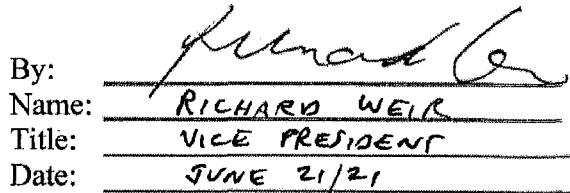 By:
Name: RICHARD WEIR
Title: VICE PRESIDENT
Date: JUNE 21/21